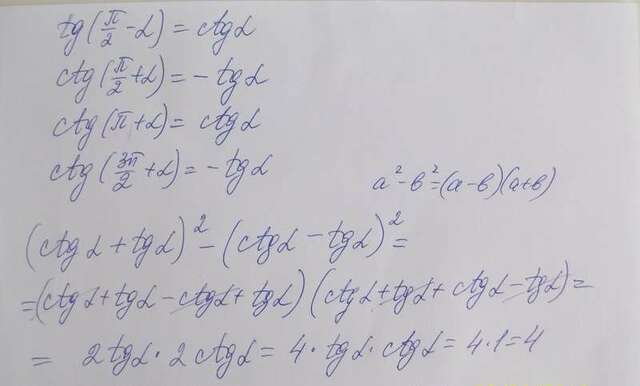 tg(π/2 - α) = ctg α
ctg(π/2 + α) = - tg α
ctg(π + α) = ctg α
ctg(3π/2 + α) = - tg α
a² - в² = (a - в)(a + в)
(ctg α + tg α)² - (ctg α - tg α)² =
= (ctg α + tg α - ctg α + tg α)(ctg α + tg α + ctg α - tg α) =
= 2 tg α · 2 ctg α = 4 · tg α · ctg α = 4 · 1 = 4